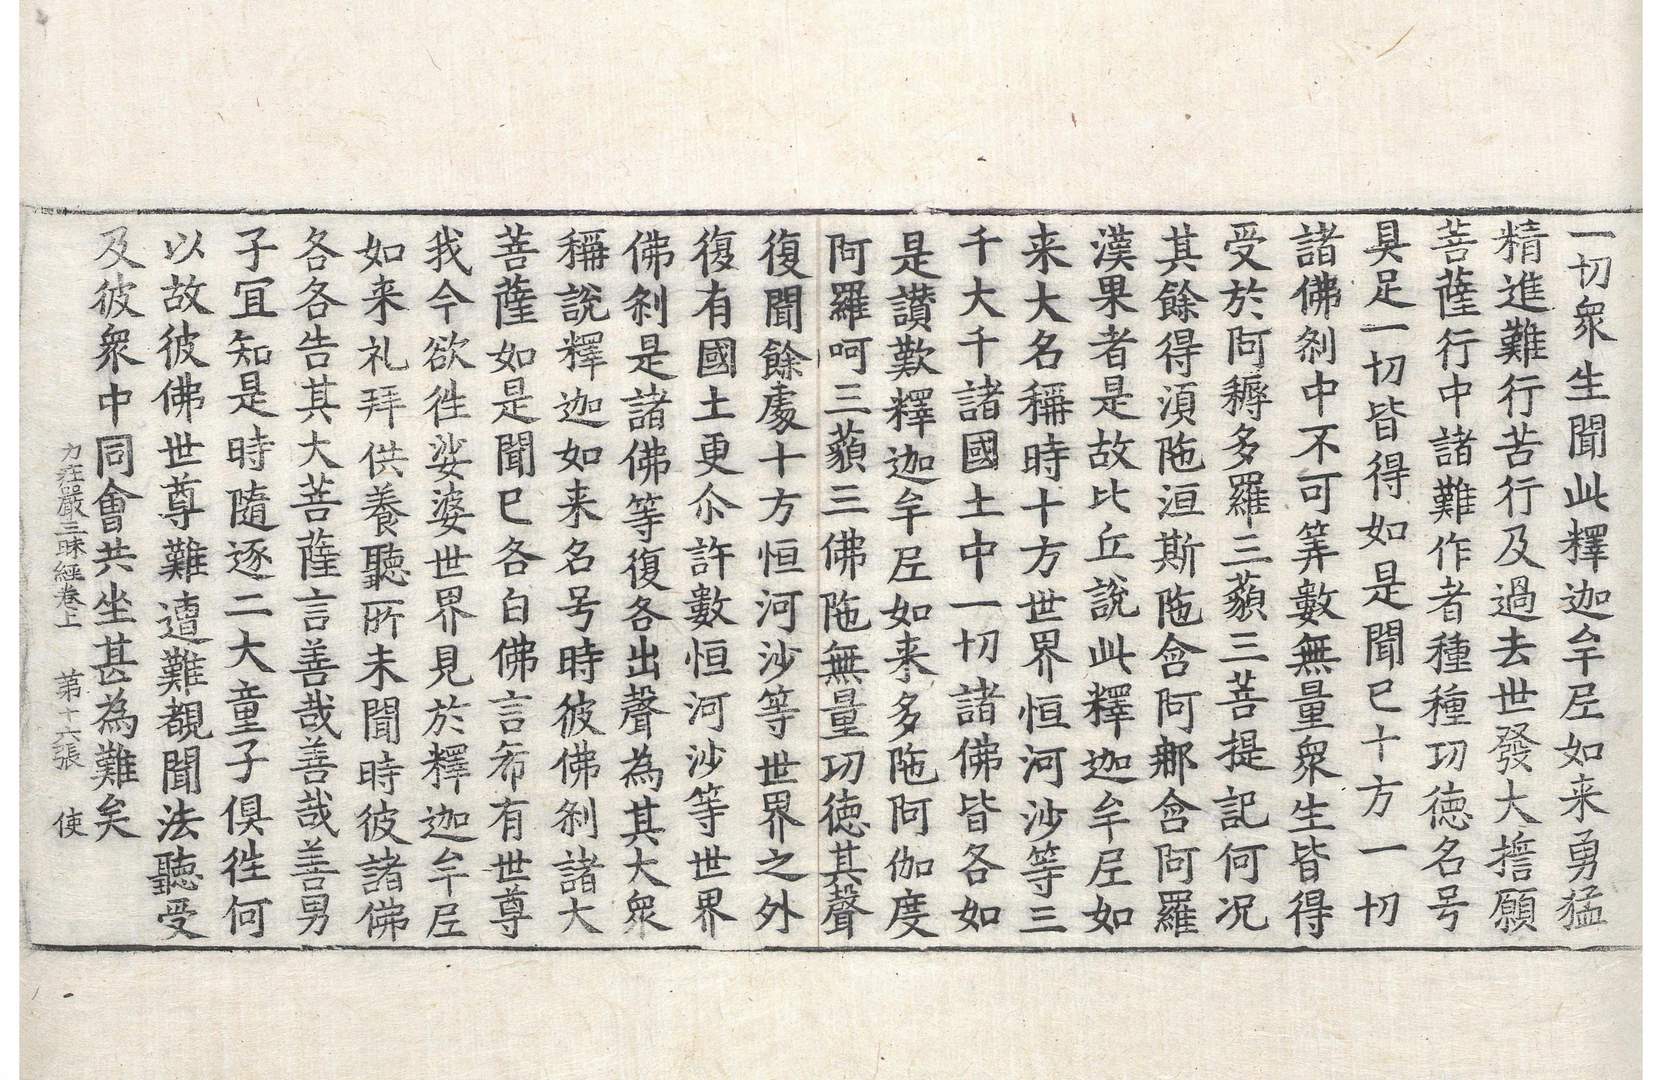 一切衆生聞此釋迦牟尼如来勇猛
精進難行苦行及過去世發大擔願
菩薩行中諸難作者種種功徳名号
具足一切皆得如是聞已十方一切
諸佛剎中不可筭數無量衆生皆得
受於阿耨多羅三藐三菩提記何況
其餘得湏陁洹斯陁含阿那含阿羅
漢果者是故比丘說此釋迦牟尼如
来大名稱時十方世界恒河沙等三
千大千諸國土中一切諸佛皆各如
是讃歎釋迦牟尼如来多陁阿伽度
阿羅呵三藐三佛陁無量功徳其聲
復聞餘處十方恒河沙等世界之外
復有國土更尒許數恒河沙等世界
佛剎是諸佛等復各出聲為其大衆
稱說釋迦如来名号時彼佛剎諸大
菩薩如是聞已各白佛言希有世尊
我今欲徃娑婆世界見於釋迦牟尼
如来礼拜供養聽所未聞時彼諸佛
各各告其大菩薩言善哉善哉善男
子冝知是時隨逐二大童子俱徃何
以故彼佛世尊難遭難覩聞法聽受
及彼衆中同會共坐甚為難矣
力莊嚴三昧經卷上 第十六張 使